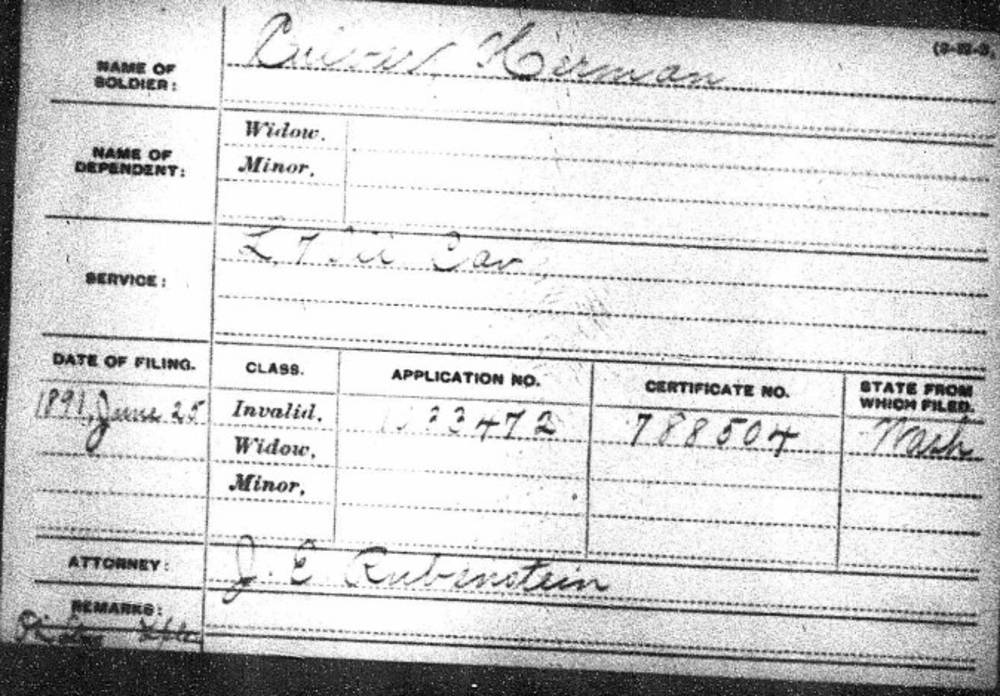 (3-
NAME OF SOLDIER: Herman
NAME OF DEPENDENT: Widow,
Minor,
SERVICE: L, 7 Ill Cav
DATE OF FILING. CLASS. APPLICATION NO. CERTIFICATE NO. STATE FROM WHICH FILED.
1891, June 25 Invalid, 788504 Wash
Widow,
Minor,
ATTORNEY: J. E. Rubenstein
REMARKS: